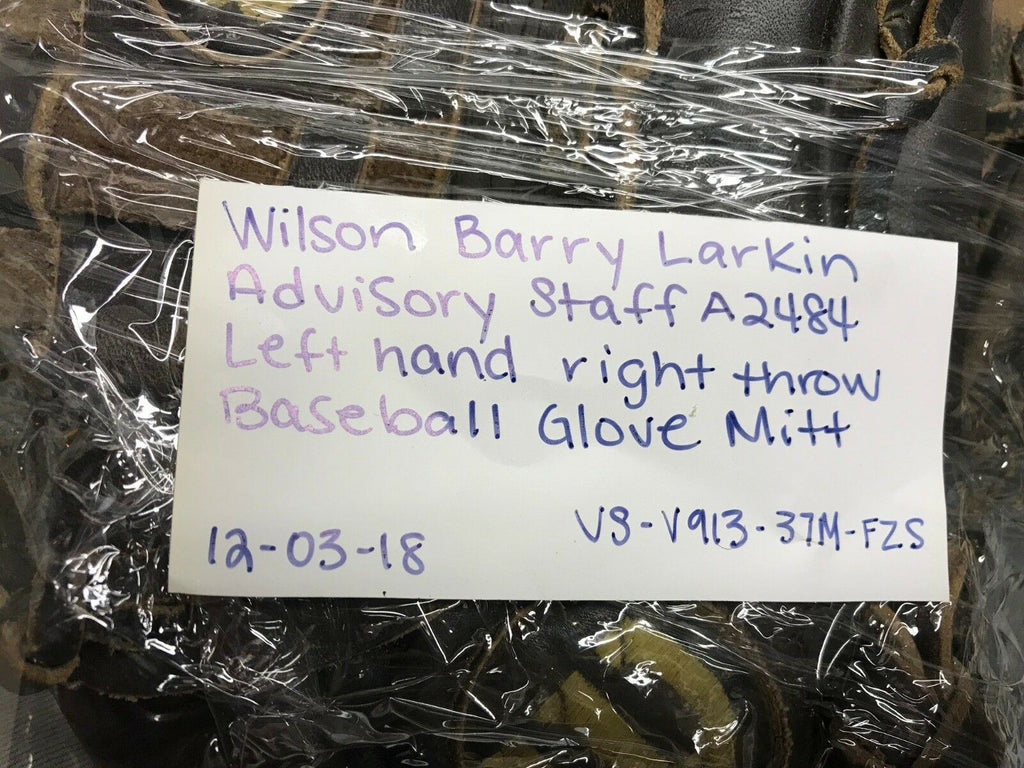 Wilson Barry Larkin
Advisory Staff A2484
Left hand right throw
Baseball Glove Mitt
12-03-18 VS-V913-37M-FZS